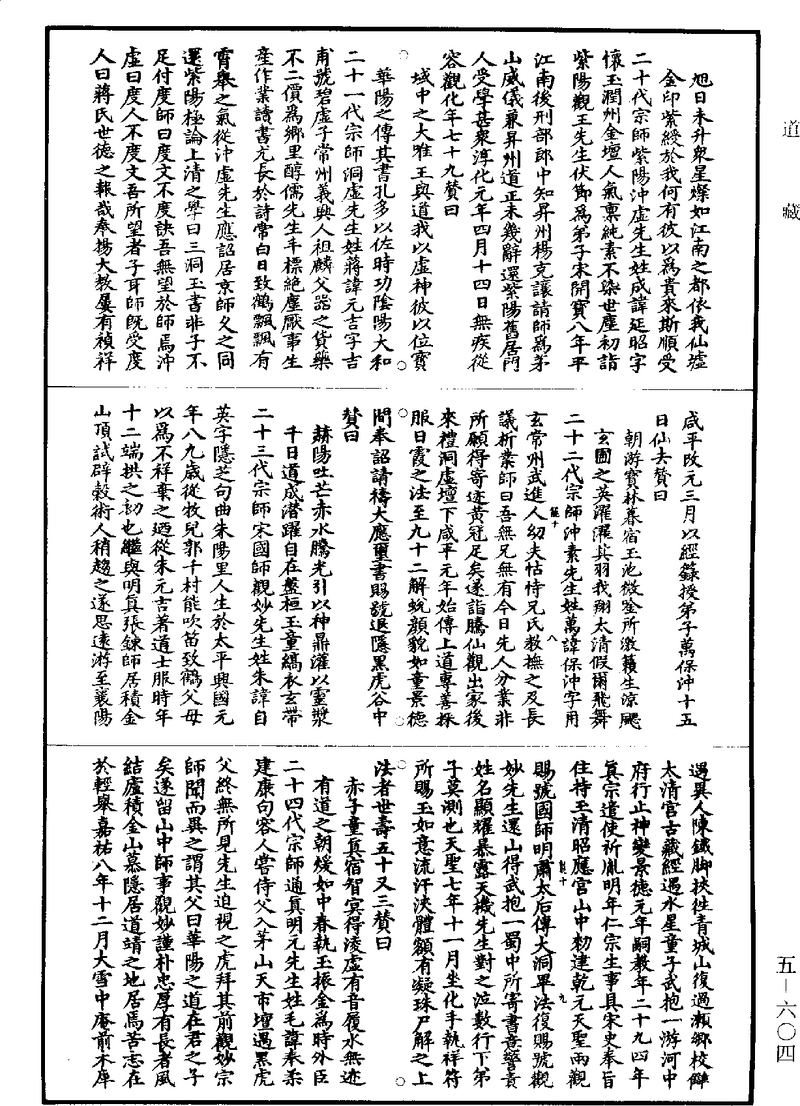 道藏
旭日未升衆星燦如江南之都依我仙墟
金印紫綬於我何有彼以為貴來斯順受
二十代宗師紫陽沖虛先生姓成諱延昭字
懷玉潤州金壇人氣稟純素不染世塵初詣
紫陽觀王先生伏節為弟子宋開寶八年平
江南後刑部郎中知昇州楊克讓請師為茅
山威儀兼昇州道正未幾辭還紫陽舊居門
人受學甚衆淳化元年四月十四日無疾從
容觀化年七十九贊曰
域中之大唯王與道我以虛神彼以位寶
華陽之傳其書孔多以佐時功陰陽大和
二十一代宗師洞虛先生姓蔣諱元吉字吉
甫號碧虛子常州義興人祖麟父器之貨藥
不二價為鄉里醇儒先生丰標絶塵厭事生
產作業讀書尤長於詩常白日致鶴飄飄有
霄舉之氣從沖虛先生應詔居京師久之同
還紫陽極論上清之學曰三洞玉書非子不
足付度師曰度文不度訣吾無望於師焉沖
虛曰度人不度文吾所望者子耳師既受度
人曰蔣氏世德之報哉奉揚大教屢有禎祥
咸平改元三月以經籙授弟子萬保沖十五
日仙去贊曰
朝游寶林暮宿玉池微塗所激籟生涼颸
玄圃之英濯濯其羽我翔太清假爾飛舞
二十二代宗師沖素先生姓萬諱保沖字用
玄常州武進人幼失怙恃兄氏教撫之及長
議析業師曰吾無兄無有今日先人分業非
所願得寄迹黃冠足矣遂詣騰仙觀出家後
來禮洞虛壇下咸平元年始傳上道專善採
服日霞之法至九十二解蛻顏貌如童景德
間奉詔請禱大應璽書賜號退隱黑虎谷中
贊曰
赫陽吐芒赤水騰光引以神鼎灌以靈漿
千日道成潛躍自在盤桓玉童縞衣玄帶
二十三代宗師宋國師觀妙先生姓朱諱自
英字隱芝句曲朱陽里人生於太平興國元
年八九歲從牧兒郭千村能吹笛致鶴父母
以為不祥棄之廼從朱元吉著道士服時年
十二端拱之初也繼與明真張鍊師居積金
山頂試辟穀術人稍趨之遂思遠游至襄陽
遇異人陳鐵脚挾往青城山復過瀨鄉校讎
太清宮古藏經過水星童子武抱一游河中
府行止神變景德元年嗣教年二十九四年
真宗遣使祈胤明年仁宗生事具宋史奉旨
住持玉清昭應宮山中勑建乾元天聖兩觀
賜號國師明肅太后傳大洞畢法復賜號觀
妙先生還山得武抱一蜀中所寄書意警責
姓名顯耀暴露天機先生對之泣數行下弟
子莫測也天聖七年十一月坐化手執祥符
所賜玉如意流汗浹體額有凝珠尸解之上
法者世壽五十又三贊曰
赤子童真宿智冥得淩虛有音履水無迹
有道之朝煖如中春執玉振金為時外臣
二十四代宗師通真明元先生姓毛諱奉柔
建康句容人嘗侍父入茅山天市壇遇黑虎
父終無所見先生追視之虎拜其前觀妙宗
師聞而異之謂其父曰華陽之道在君之子
矣遂留山中師事觀妙謹朴忠厚有長者風
結廬積金山慕隱居道靖之地居焉苦志在
於輕舉嘉祐八年十二月大雪中庵前木犀
五―六〇四